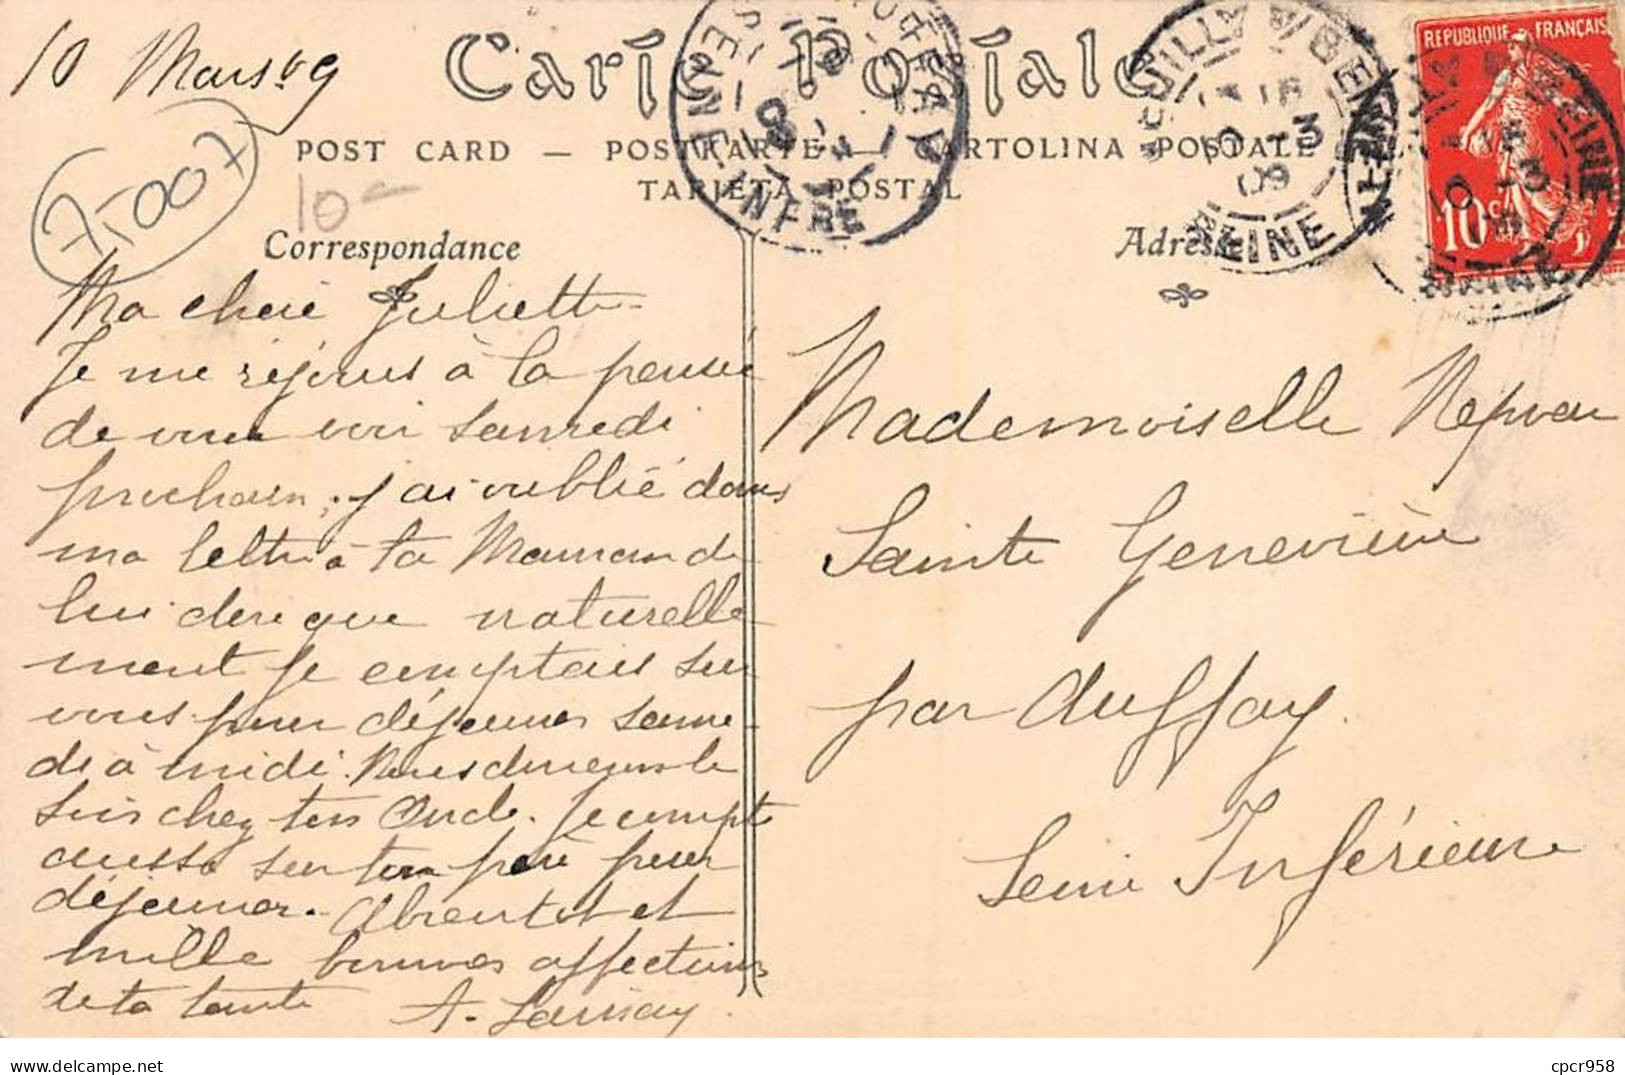 10 Mars 09
Carte Postale
POST CARD — POSTKARTE — CARTOLINA POSTALE
TARJETA POSTAL
75007
10-
Correspondance
Adresse
REPUBLIQUE FRANÇAISE
10 c
SEINE-INFRE
SEINE
Ma chère Juliette
Je me réjouis à la pensée
de vous voir samedi
prochain, j'ai oublié dans
ma lettre à ta Maman de
lui dire que naturelle
ment je comptais sur
vous pour déjeuner same-
di à midi. Nous dinerons le
soir chez ton Oncle. Je compte
aussi sur ton père pour
déjeuner. A bientôt et
mille bonnes affections
de ta tante A.
Mademoiselle
Sainte Geneviève
par Auffay
Seine Inférieure
cpcr958